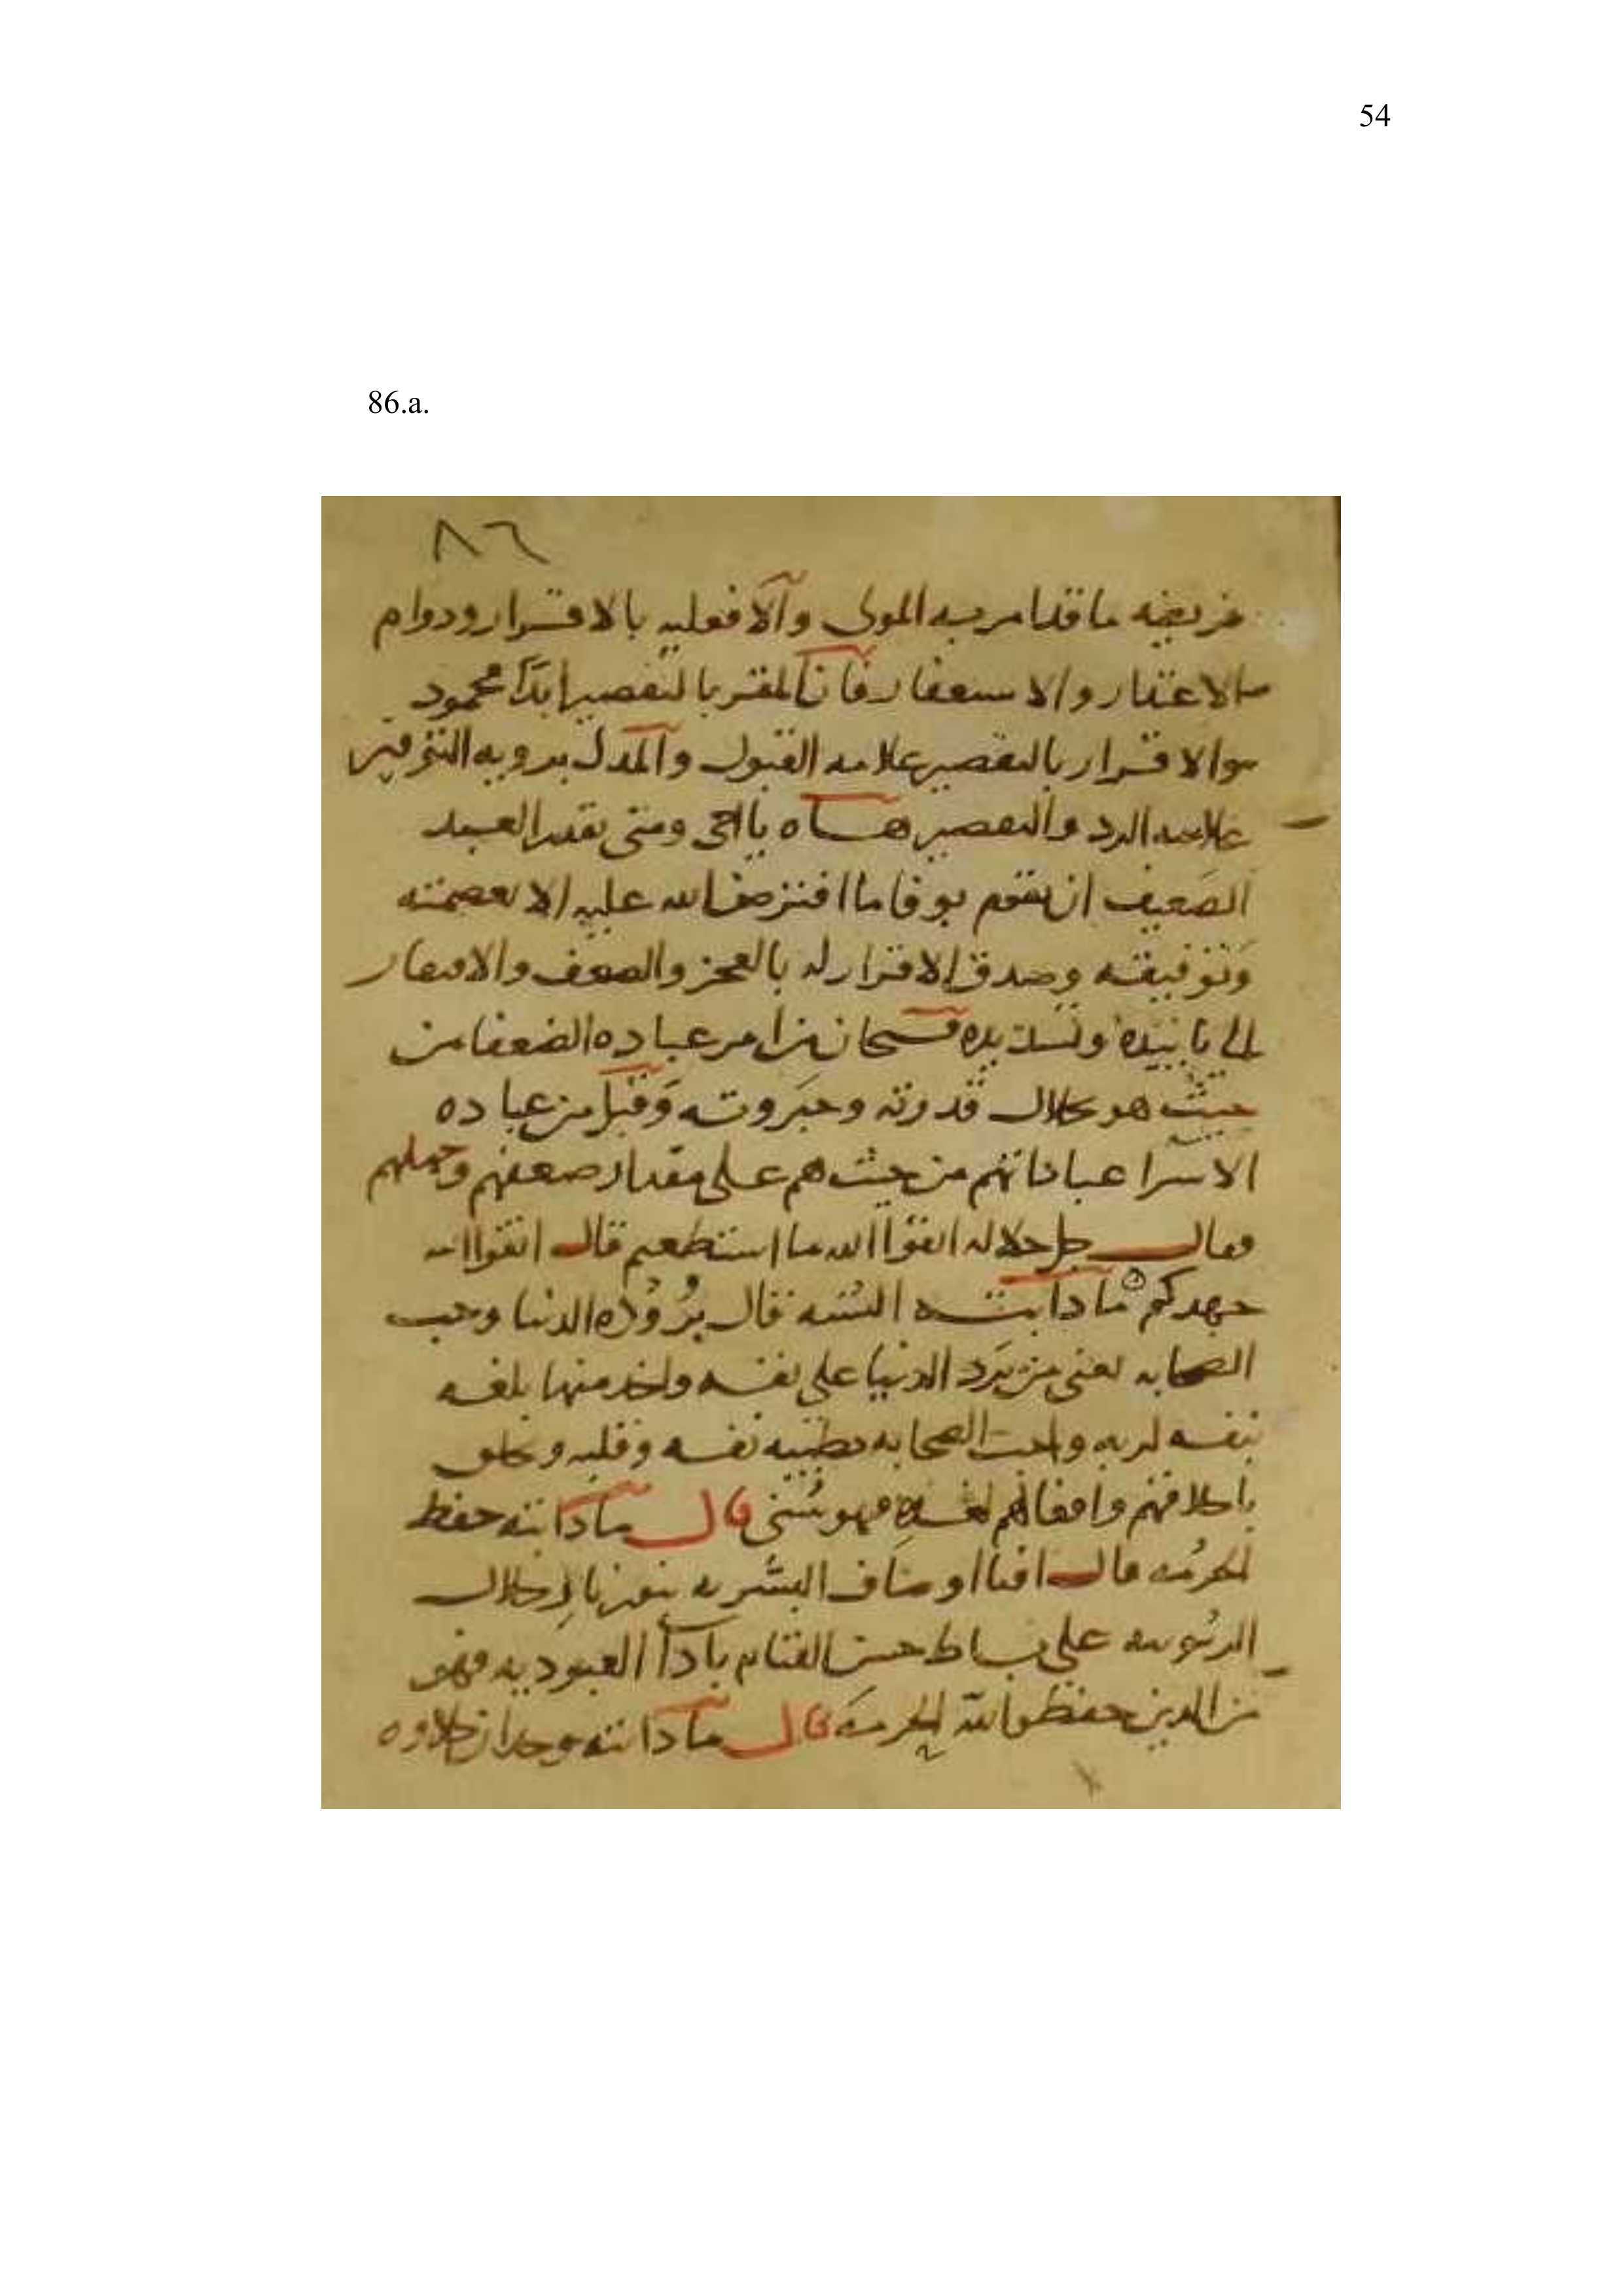 54
86.a.
٨٦
فريضه ما قد امر به المولى والا فعليه بالاقرار ودوام
الاعتذار والاستغفار فان المقر بالتقصير ابدا محمود
والاقرار بالتقصير علامه القبول والمدل بروية التوفير
علامه الرد والتقصير هـاه يا اخي ومتى يقدر العبد
الضعيف ان يقوم بوفا ما افترض الله عليه الا بعصمته
وتوفيقه وصدق الاقرار له بالعجز والضعف والافتقار
الى تاييده وتسديده فسبحان من امر عباده الضعفا من
حيث هو بجلال قدرته وجبروته وقبل من عباده
الاسرا عباداتهم من حيث هم على مقدار ضعفهم وجهلهم
فقال جل جلاله اتقوا الله ما استطعتم قال اتقوا الله
جهدكم ما ذا بته السنه قال بروده الدنيا وحب
الصحابه يعني من برد الدنيا على نفسه واخذ منها بلغه
نفسه لربه واحب الصحابه بطيبه نفسه وقلبه وتخلق
باخلاقهم وافعالهم فهو سني قال ما ذا بته حفظ
الحرمه قال افنا اوصاف البشريه بنور اجلال
الربوبيه على بساط حسن القيام باداا العبوديه فهو
من الذين حفظوا لله الحرمه قال ما ذا بته وجدان حلاوه